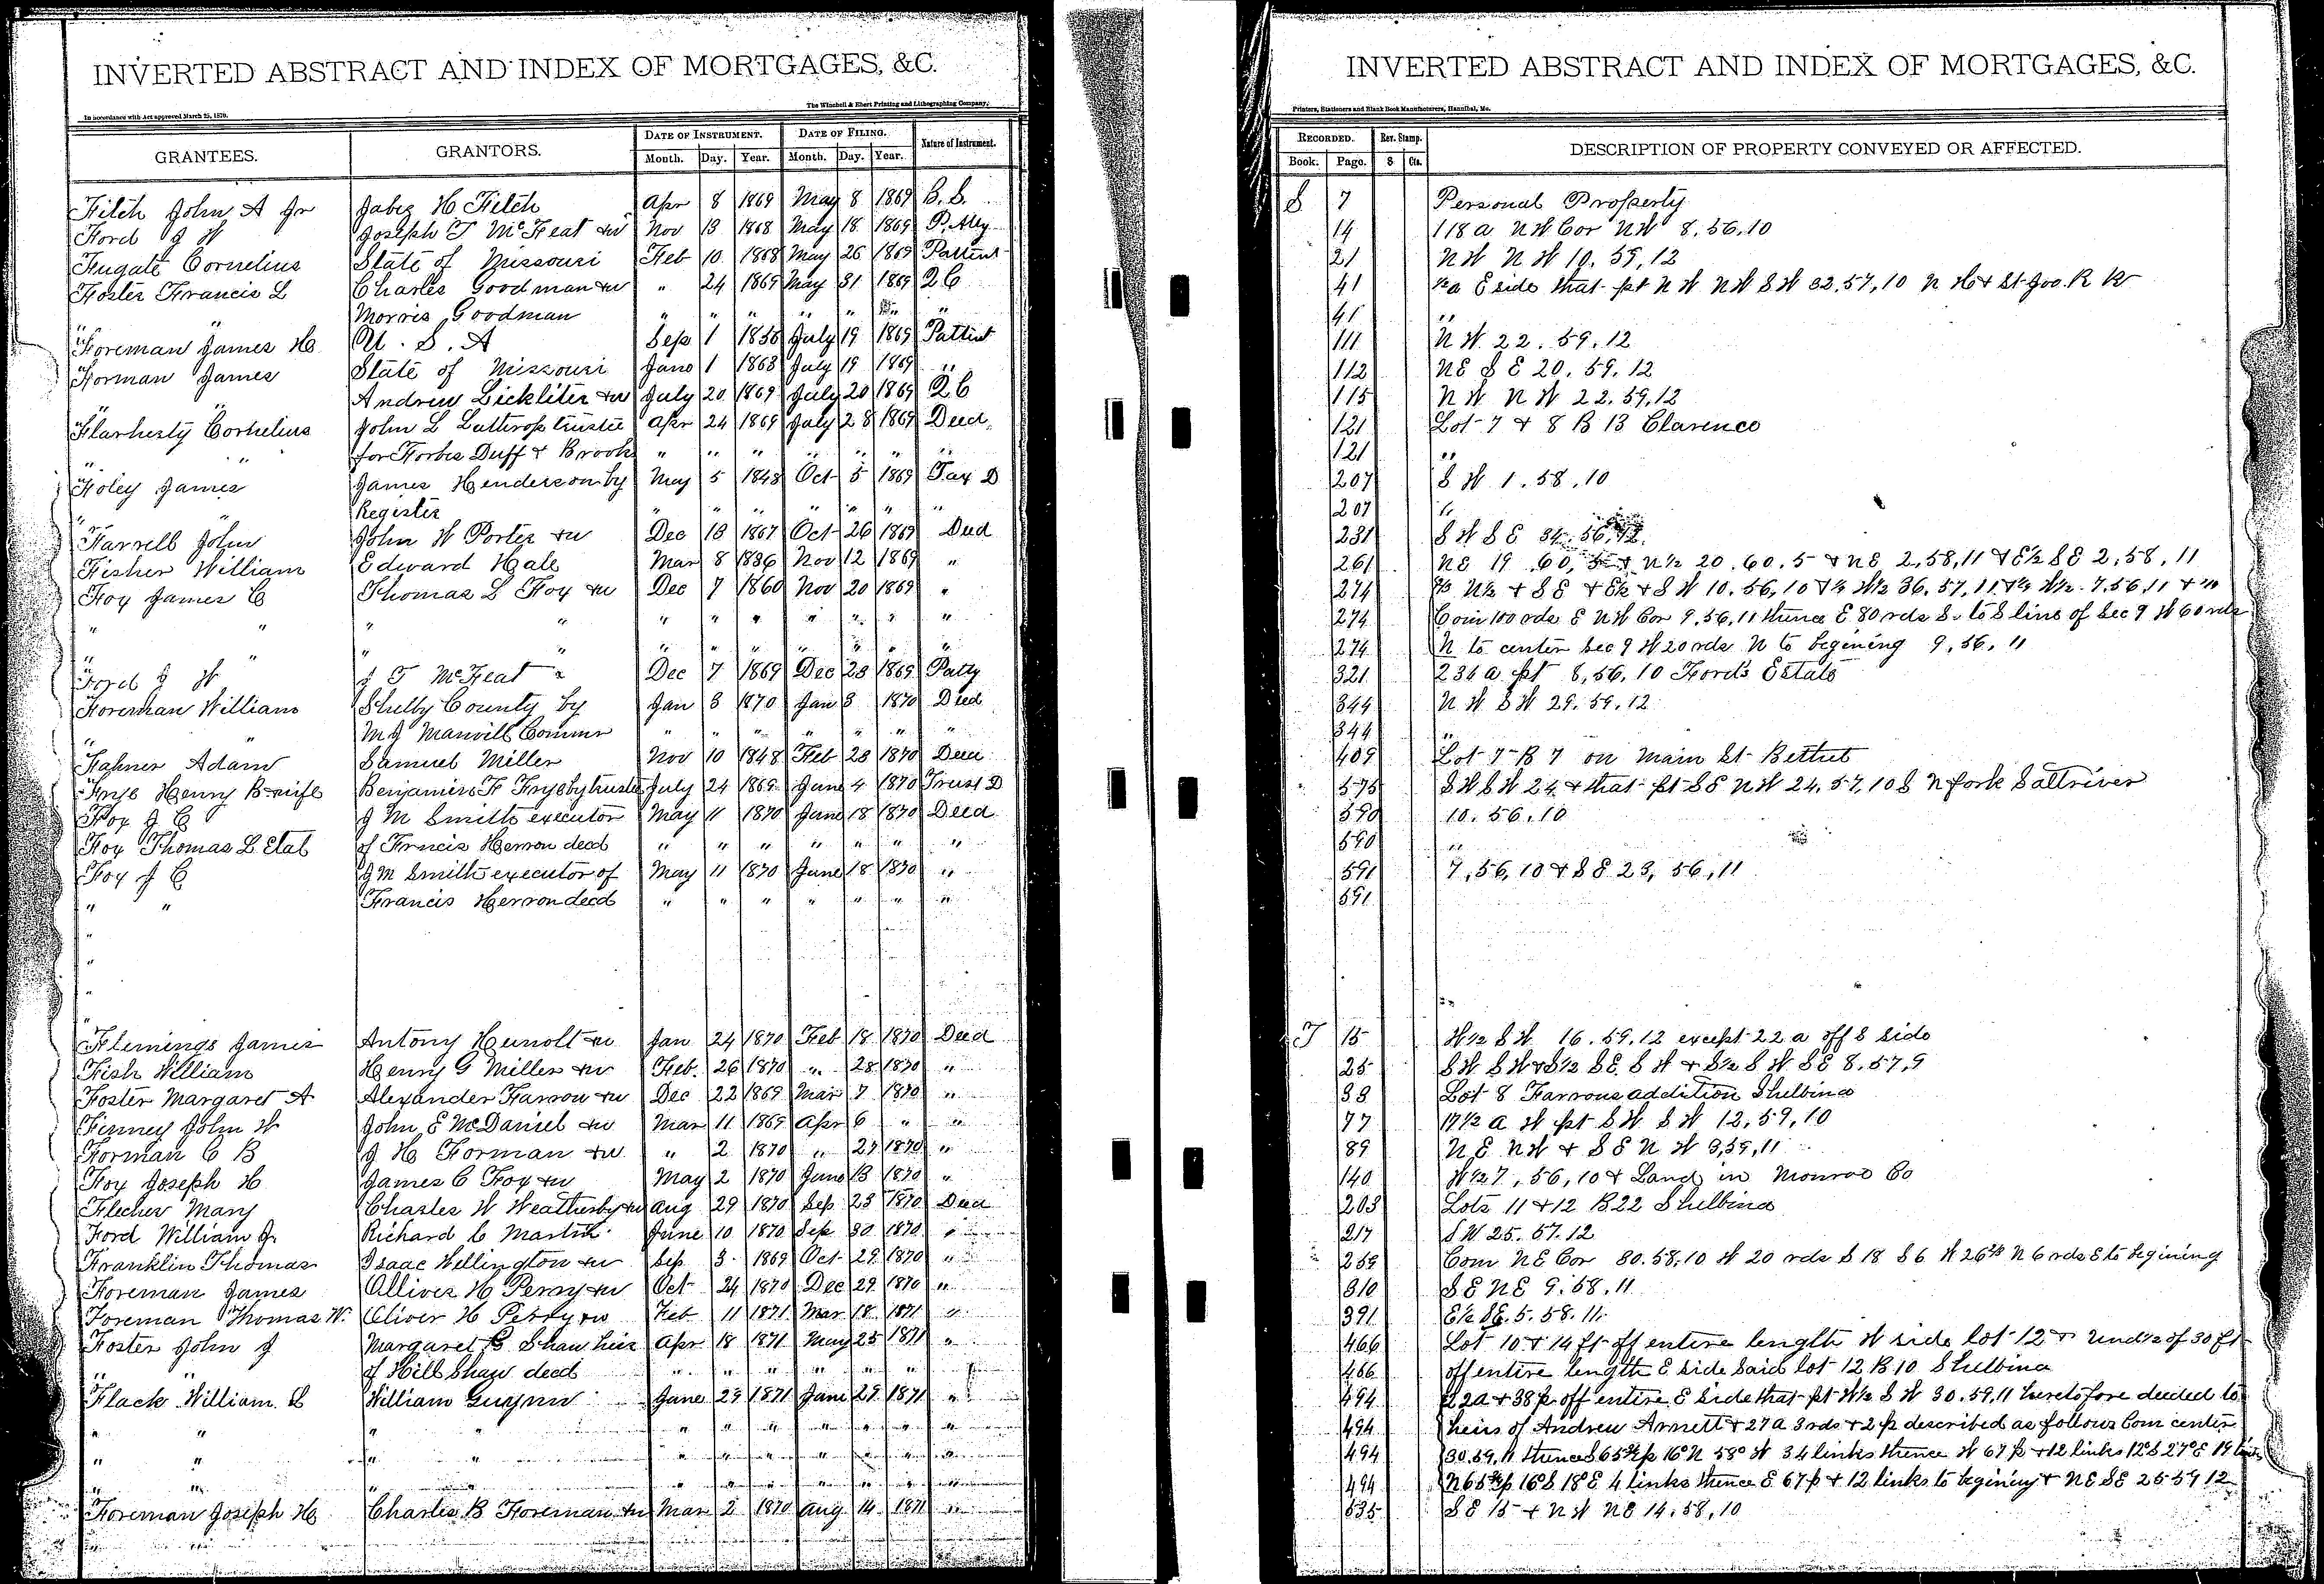 INVERTED ABSTRACT AND INDEX OF MORTGAGES, &C.
The Winchell & Ebert Printing and Lithographing Company,
In accordance with Act approved March 25, 1870.
GRANTEES. GRANTORS. DATE OF INSTRUMENT. DATE OF FILING. Nature of Instrument.
Month. Day. Year. Month. Day. Year.
Filch John A Jr Jabez H Filch Apr 8 1869 May 8 1869 B.S.
Ford J W Joseph T McFeat &w Nov 13 1868 May 18 1869 P. Atty
Fugate Cornelius State of Missouri Feb 10 1868 May 26 1869 Pattent
Foster Francis L Charles Goodman &w " 24 1869 May 31 1869 QC
" " Morris Goodman " " " " " " "
Foreman James H U. S. A Sep 1 1856 July 19 1869 Pattent
Forman James State of Missouri June 1 1868 July 19 1869 "
" " Andrew Lickliter &w July 20 1869 July 20 1869 QC
Flarherty Cornelius John L Lathrop trustee Apr 24 1869 July 28 1869 Deed
" " for Forbes Duff & Brooks " " " " " " "
Foley James James Henderson by May 5 1848 Oct 5 1869 Tax D
" " Register " " " " " " "
Farrell John John W Porter &w Dec 18 1867 Oct 26 1869 Deed
Fisher William Edward Hale Mar 8 1836 Nov 12 1869 "
Foy James C Thomas L Foy &w Dec 7 1860 Nov 20 1869 "
" " " " " " " " " " "
" " " " " " " " " " "
Ford J W J T McFeat " Dec 7 1869 Dec 23 1869 Patty
Foreman William Shelby County by Jan 3 1870 Jan 3 1870 Deed
" " M J Manvill Commr " " " " " " "
Fahner Adam Samuel Miller Nov 10 1848 Feb 23 1870 Deed
Frye Henry B wife Benjamin F Frye by trustee July 24 1869 June 4 1870 Trust D
Foy J C J M Smith executor May 11 1870 June 18 1870 Deed
Foy Thomas L Etal of Francis Herron decd " " " " " " "
Foy J C J M Smith executor of May 11 1870 June 18 1870 "
" " Francis Herron decd " " " " " " "
"
"
"
"
Flemings James Antony Hunolt &w Jan 24 1870 Feb 18 1870 Deed
Fish William Henry G Miller &w Feb. 26 1870 " 28 1870 "
Foster Margaret A Alexander Farrow &w Dec 22 1869 Mar 7 1870 "
Finney John W John E McDaniel &w Mar 11 1869 Apr 6 " "
Forman C B J H Forman &w " 2 1870 " 27 1870 "
Foy Joseph H James C Foy &w May 2 1870 June 13 1870 "
Flecher Mary Charles W Weatherby &w Aug 29 1870 Sep 23 1870 Deed
Ford William Jr Richard C Martin June 10 1870 Sep 30 1870 "
Franklin Thomas Isaac Wellington &w Sep 3 1869 Oct 29 1870 "
Foreman James Olliver H Perry &w Oct 24 1870 Dec 29 1870 "
Foreman Thomas W. Oliver H Perry &w Feb 11 1871 Mar 18 1871 "
Foster John J Margaret C Shaw heir Apr 18 1871 May 25 1871 "
" " of Hill Shaw decd " " " " " " "
Flack William L William Guynn June 29 1871 June 29 1871 "
" " " " " " " " " " "
" " " " " " " " " " "
" " " " " " " " " "
Foreman Joseph H Charles B Foreman &w Mar 2 1870 Aug 14 1871 "
INVERTED ABSTRACT AND INDEX OF MORTGAGES, &C.
Printers, Stationers and Blank Book Manufacturers, Hannibal, Mo.
RECORDED. Rev. Stamp. DESCRIPTION OF PROPERTY CONVEYED OR AFFECTED.
Book. Page. $ Cts.
S 7 Personal Property
14 118 a NW Cor NW 8.56.10
21 NW NW 10.59.12
41 E side that pt NW NW SW 32.57.10 N H & St Joe R R
41 "
111 NW 22.59.12
112 NE SE 20.59.12
115 NW NW 22.59.12
121 Lot 7 & 8 B 13 Clarence
121 "
207 SW 1.58.10
207 "
231 SW SE 34.56.12
261 NE 19 60, 5 & N½ 20.60.5 & NE 2,58,11 & E½ SE 2,58,11
274 N½ & SE & E½ & SW 10.56,10 W½ 36.57,11 W½ 7,56,11
274 Com 100 rds E NW Cor 9.56,11 thence E 80 rds S. to S line of Sec 9 W 60 rds
274 N to center Sec 9 W 20 rds N to begining 9,56,11
321 236 a pt 8,56,10 Ford's Estate
344 NW SW 29.59.12
344 "
409 Lot 7 B 7 on Main St Bethel
575 SW SW 24 & that pt SE NW 24.57.10 S N fork Saltriver
590 10.56.10
590 "
591 7,56,10 & SE 23,56,11
591
"
T 15 W½ SW 16.59.12 except 22 a off S side
25 SW SW & S½ SE SW & S½ SW SE 8.57.9
38 Lot 8 Farrows addition Shelbina
77 17½ a W pt SW SW 12,59,10
89 NE NW & SE NW 3,59,11
140 W½ 7,56,10 & Land in Monroe Co
203 Lots 11 & 12 B 22 Shelbina
217 SW 25.57.12
259 Com NE Cor 30.58.10 W 20 rds S 18 S 6 W 26⅔ N 6 rds E to begining
310 SE NE 9.58.11
391 E½ SE. 5.58.11.
466 Lot 10 & 14 ft off entire length W side lot 12 & und½ of 30 ft
466 off entire length E side said lot 12 B 10 Shelbina
494 22 a & 38 p off entire E side that pt W½ SW 30.59,11 heretofore deeded to
494 heirs of Andrew Arnett & 27 a 3 rds & 2 p described as follows Com center
494 30.59.11 thence S 65¾ p 16° N 58° W 34 links thence W 67 p & 12 links 12° S 27° E 19 links
494 N 65¾ p 16° S 18 E 4 links thence E 67 p & 12 links to begining & NE SE 25 59 12
535 SE 15 & NW NE 14.58.10